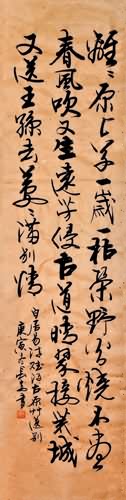 離々原上草一歲一枯榮野火燒不盡
春風吹又生遠芳侵古道晴翠接荒城
又送王孫去萋々滿別情
白居易詩賦得古原草送別
庚寅